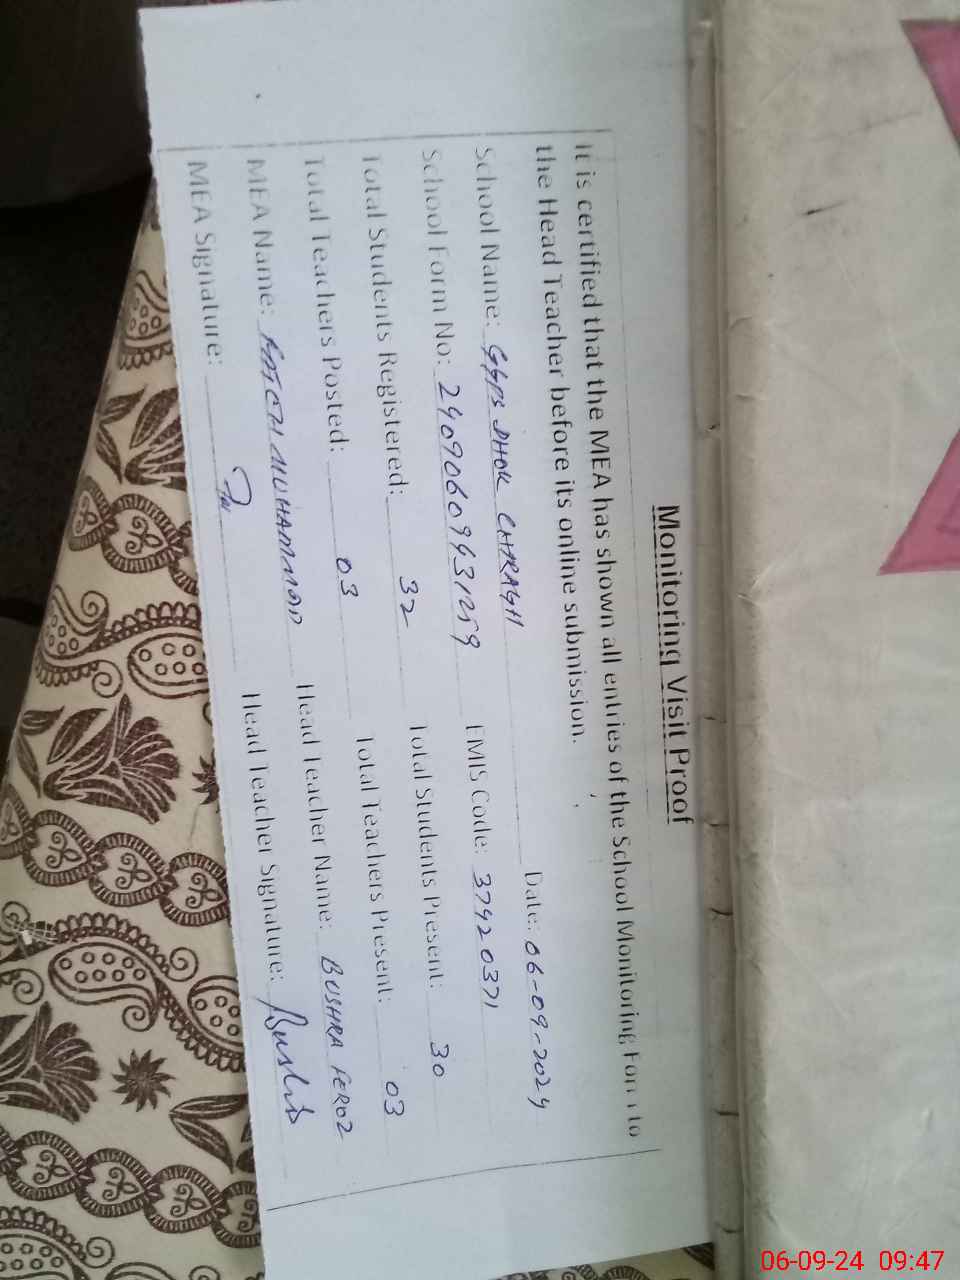 Monitoring Visit Proof
It is certified that the MEA has shown all entries of the School Monitoring Form to
the Head Teacher before its online submission.
School Name: GGPS DHOK CHIRAGH Date: 06-09-2024
School Form No: EMIS Code: 37420371
Total Students Registered: 32 Total Students Present: 30
Total Teachers Posted: 03 Total Teachers Present: 03
MEA Name: MUHAMMAD Head Teacher Name: BUSHRA FEROZ
MEA Signature: Head Teacher Signature: Bushra
06-09-24 09:47